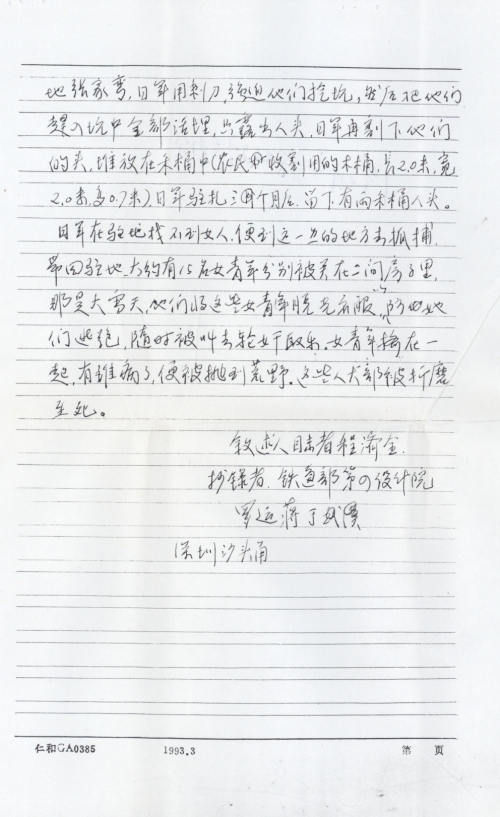 地张家弯,日军用刺刀,强迫他们挖坑,然后把他们
赶入坑中全部活埋,只露出人头,日军再割下他们
的头,堆放在禾桶中(农民收割用的禾桶,长2.0米,宽
2.0米,高0.7米)日军驻扎三四个月后.留下有两禾桶人头。
日军在驻地找不到女人,便到远一点的地方去抓捕.
带回驻地,大约有15名女青年分别被关在二间房子里,
那是大雪天,他们将这些女青年脱光衣服,防止她
们逃跑,随时被叫去轮奸取乐.女青年挤在一
起,有谁病了,便被抛到荒野.这些人大部被折磨
至死。
叙述人目击者程济金.
抄录者.铁道部第四设计院
罗运蒋
深圳沙头角
仁和GA0385 1993.3 第 页